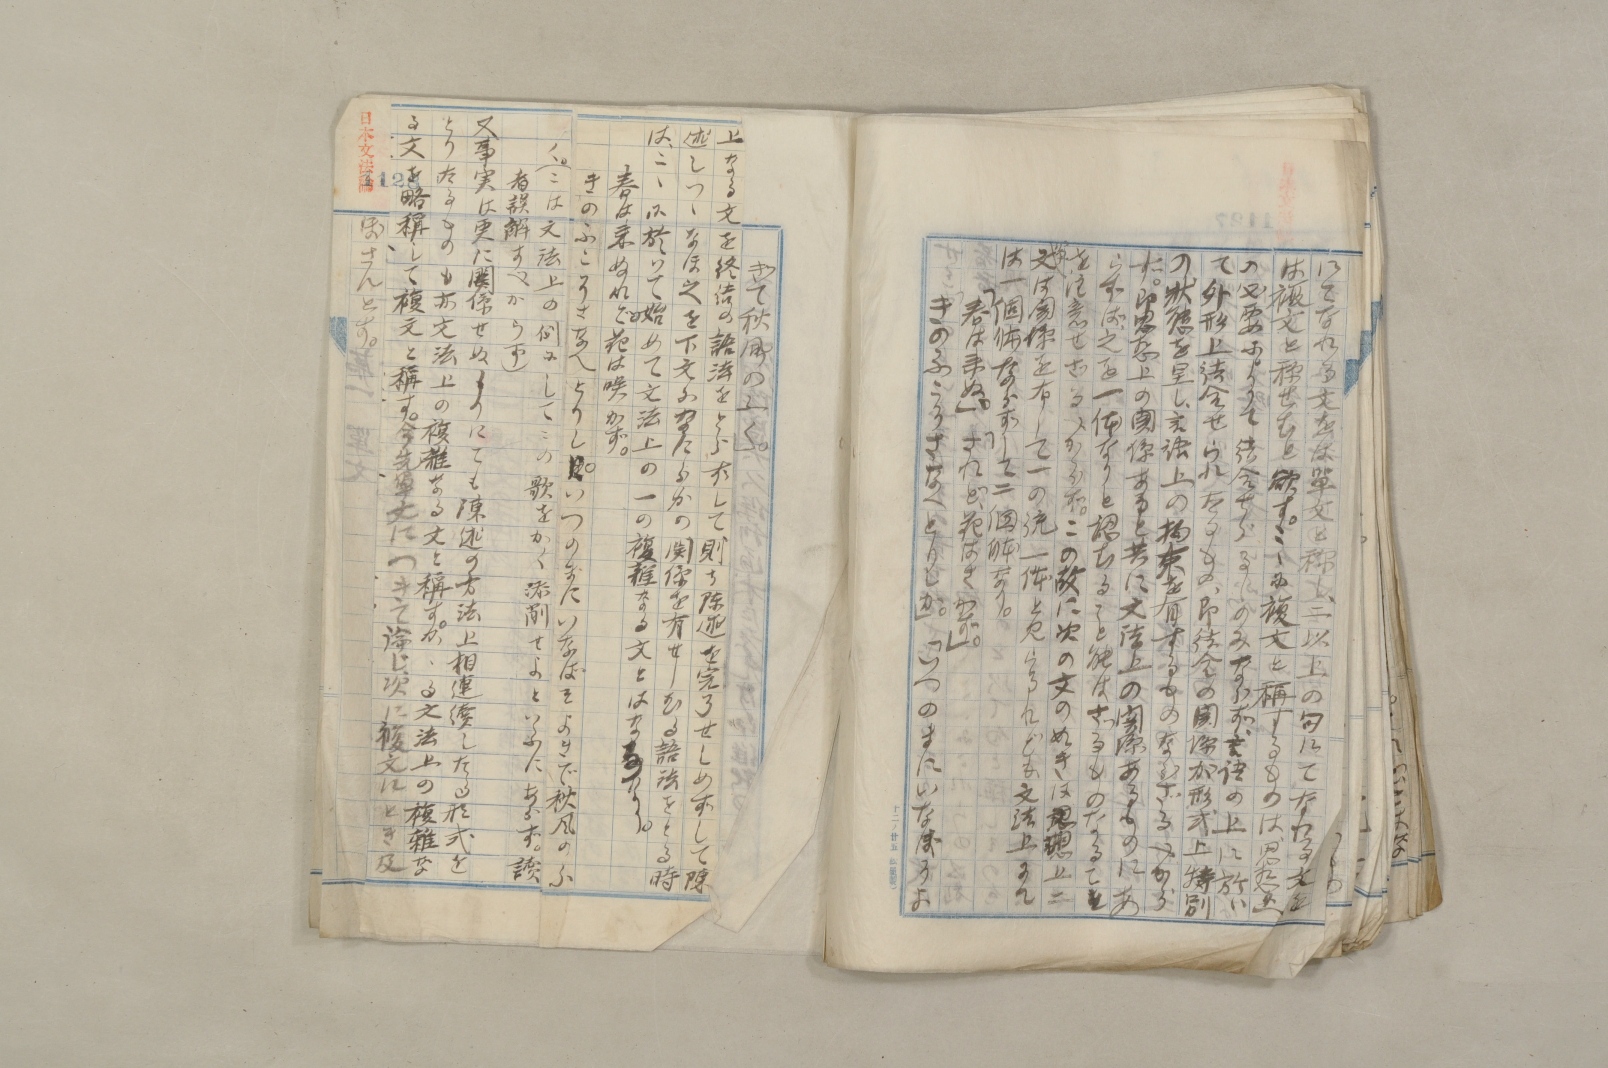 にてなれる文をば単文と称し、二以上の句にてなれる文を
ば複文と称せむと欲す。こゝに複文と称するものは思想上
の必要によりて結合せらるゝのみならず、言語の上に於い
て外形上結合せられたるもの、即結合の関係が形式上特別
の状態を呈し、言語上の拘束を有するものならざるべから
ず。即思想上の関係あると共に文法上の関係あるものにあ
らずば之を一体なりと認むること能はざるものなること
を注意せざるべからず。この故に次の文の如きは思想上こ
そは関係を有して一の統一体と見らるれども文法上それ
は一個体ならずして二個体なり。
「春は来ぬ」。「されど、花はさかず。」
きのふこそさなへとりしか。「いつのまにいなばそよ
ぎて秋風のふく。」
上なる文を終結の語法をとらずして則ち陳述を完了せしめずして陳
述しつゝなほ之を下文に対するかの関係を有せしむる語法をとる時
は、こゝに於いて始めて文法上の一の複雑なる文とはなるなり。
春は来ぬれど花は咲かず。
きのふこそさなへとりしか。いつのまにいなばそよぎて秋風のふ
く。(こは文法上の例にしてこの歌をかく添削せよといふにあらず。読
者誤解すべからず)
又事実は更に関係せぬものにても陳述の方法上相連続したる形式を
とりたるものも亦文法上の複雑なる文と称す。かゝる文法上の複雑な
る文を略称して複文と称す。今先単文につきて論じ次に複文にとき及
ぼさんとす。
日本文法論